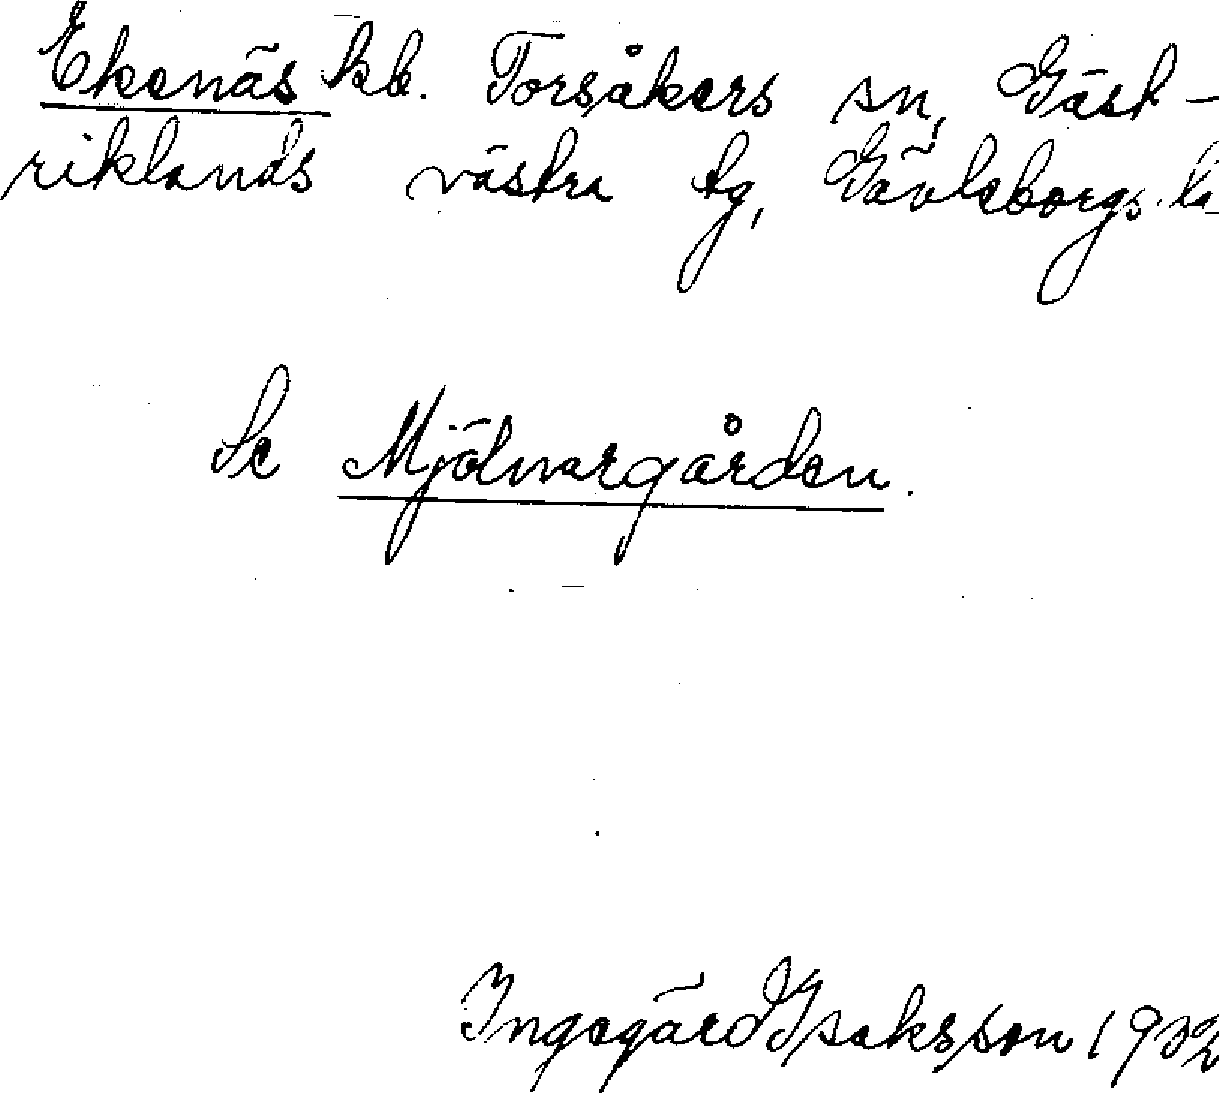 Ekenäs kb. Torsåkers sn, Gäst-
riklands västra tg, Gävleborgs lä
Se Mjölnargården.
Ingegärd Isaksson 1932